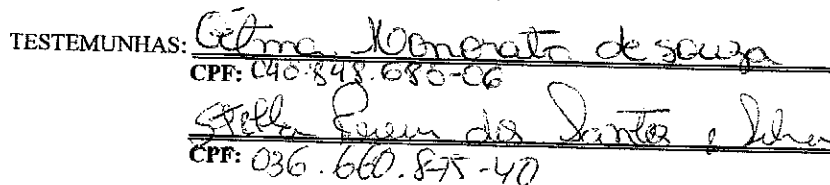 TESTEMUNHAS: Célma Honorata de souza
CPF: 040.848.680-06
Stella dos Santos e Silva
CPF: 036.660.875-40